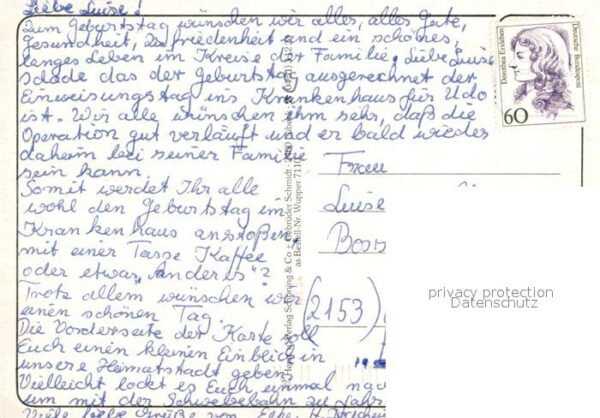 Liebe Luise!
Zum Geburtstag wünschen wir alles, alles Gute,
Gesundheit, Zufriedenheit und ein schönes,
langes Leben im Kreise der Familie. Liebe Luise
schade das der Geburtstag ausgerechnet der
Einweisungstag ins Krankenhaus für Udo
ist. Wir alle wünschen ihm sehr, daß die
Operation gut verläuft und er bald wieder
daheim bei seiner Familie
sein kann.
Somit werdet Ihr alle
wohl den Geburtstag im
Krankenhaus anstoßen,
mit einer Tasse Kaffee
oder etwas "Anderes"?
Trotz allem wünschen wir
einen schönen Tag.
Die Vorderseite der Karte soll
Euch einen kleinen Einblick in
unsere Heimatstadt geben.
Vielleicht lockt es Euch, einmal nach
um mit der Schwebebahn zu fahr
Viele liebe Grüße von
Verlag Schöning & Co + Gebrüder Schmidt · Lübeck
Bestell-Nr. Wupper
Dorothea Erxleben
Deutsche Bundespost
60
Frau
Luise
(2153)
privacy protection
Datenschutz